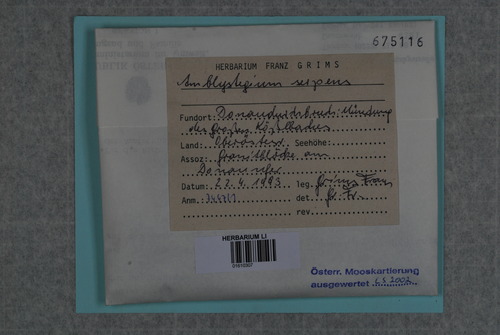 675116
HERBARIUM FRANZ GRIMS
Amblystegium serpens
Fundort: Donaudurchbruch: Mündung
des Großen Kößlbaches
Land: Oberösterr. Seehöhe:
Assoz: Granitblöcke am
Donauufer
Datum: 22.4.1993 leg. Grims Franz
Anm. det. Gr. Fr.
rev.
HERBARIUM LI
Österr. Mooskartierung
ausgewertet 2002